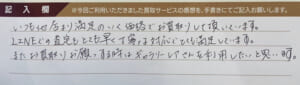 記入欄 ※今回ご利用いただきました買取サービスの感想を、手書きにてご記入お願いします。
いつも他店より満足のいく価格でお買取りして頂いています。
LINEでの査定もとても早く丁寧な対応でとても満足しています。
またお買取りお願いする時はギャラリーレアさんを利用したいと思います。